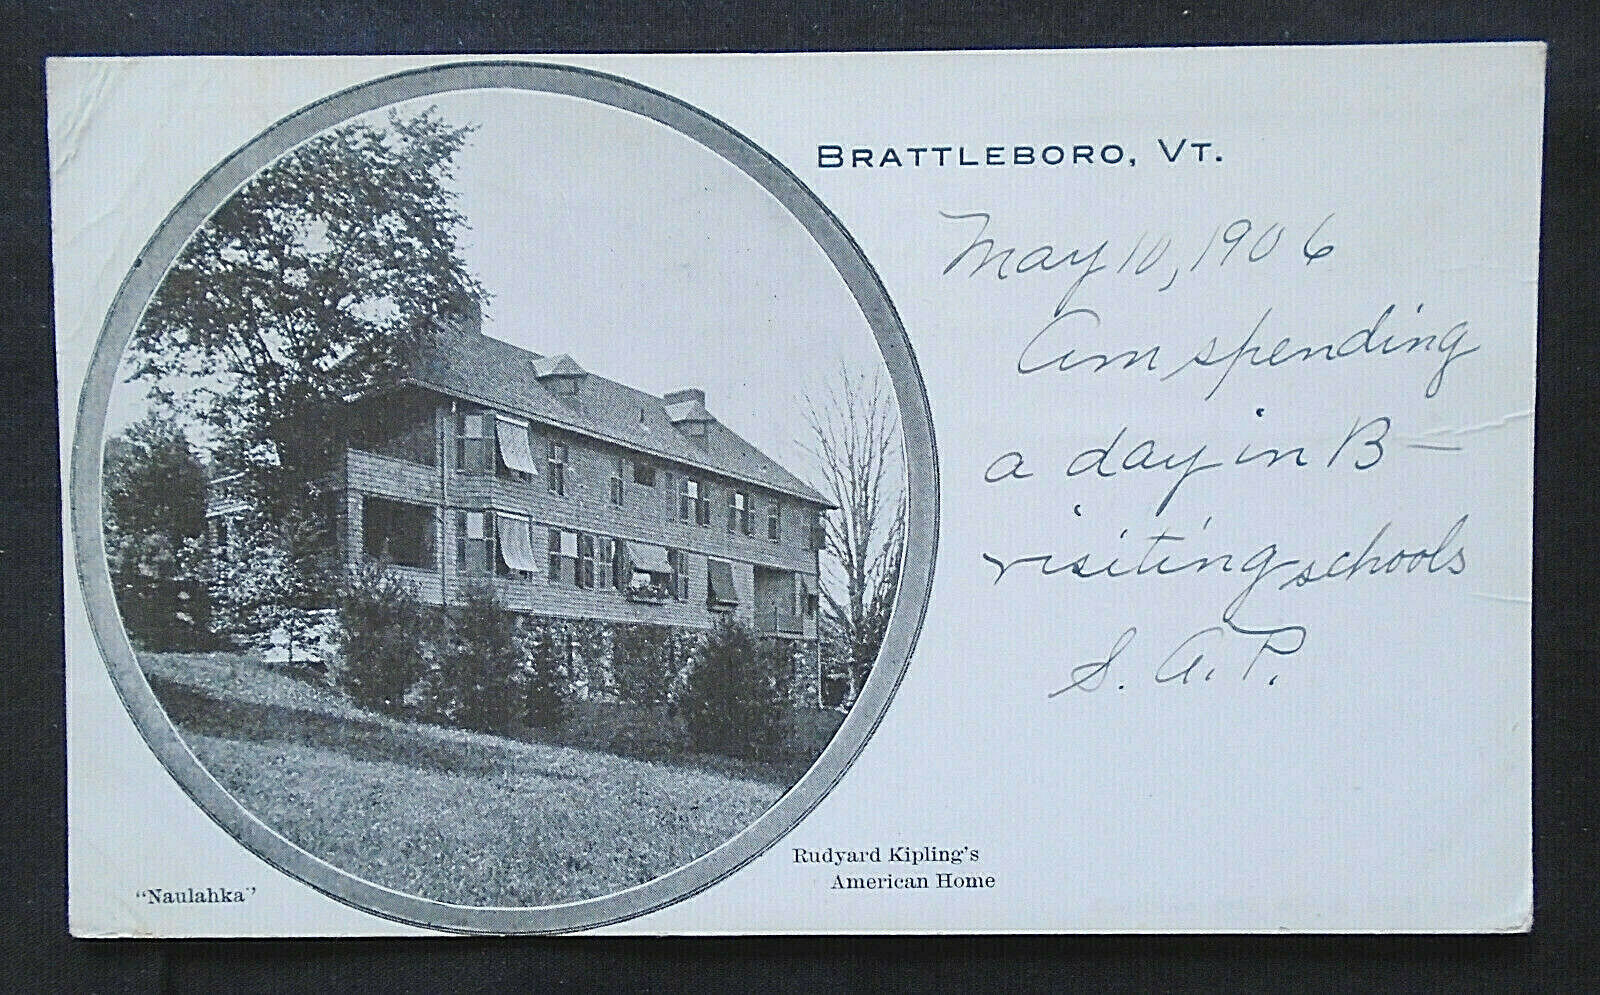 BRATTLEBORO, VT.
May 10, 1906
Am spending
a day in B—
visiting schools
S. A. P.
Rudyard Kipling's
American Home
"Naulahka"